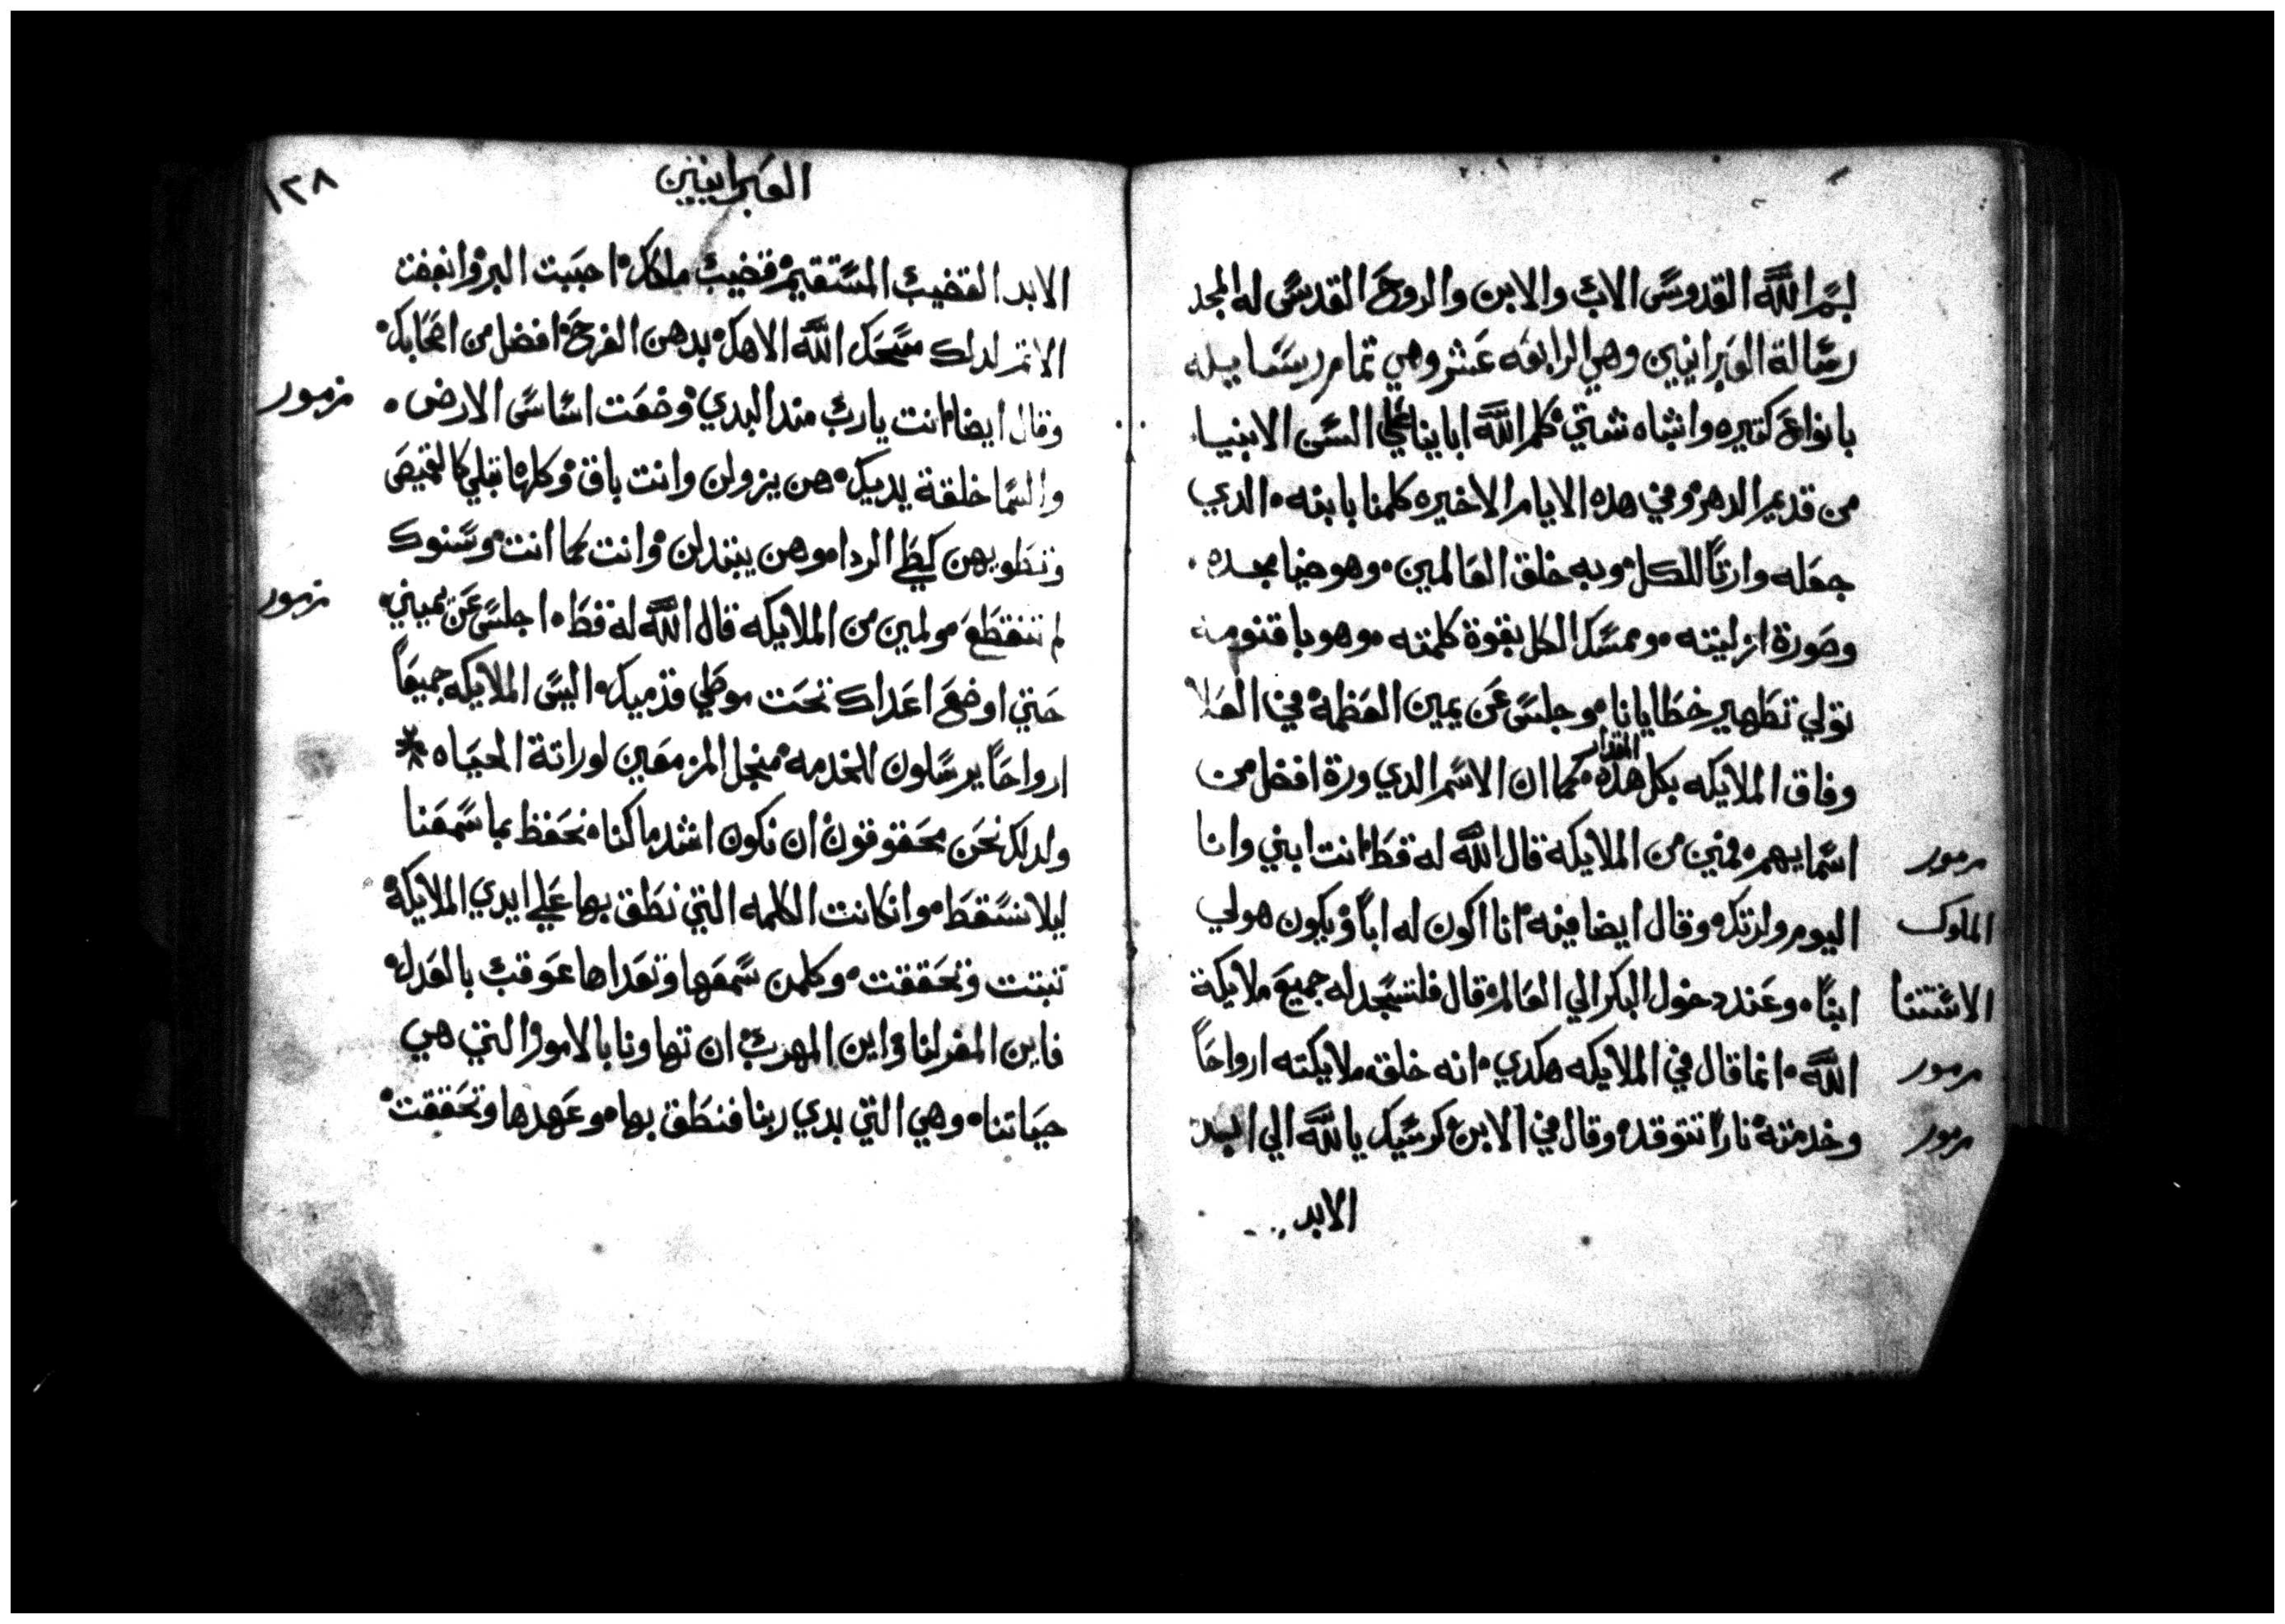 بسم الله القدوس الاب والابن والروح القدس له المجد
رسالة العبرانيين وهي الرابعه عشر وهي تمام رسايله
بانواع كتيره واشباه شتي كلم الله اباينا علي السن الانبيا
من قديم الدهر وفي هده الايام الاخيره كلمنا بابنه الدي
جعله وارتاً للكل وبه خلق العالمين وهو ضيا مجده
وصورة ازليته وممسك الكل بقوة كلمته وهو باقنومه
تولي تطهير خطايانا وجلس عن يمين العظمة في العلا
المقدار
وفاق الملايكه بكل هذه كما ان الاسم الدي ورة افضل من
مزمور
اسمايهم فمن من الملايكة قال الله له قط انت ابني وانا
الملوك
اليوم ولدتك وقال ايضا فيه انا اكون له اباً ويكون هو لي
الاستتنا
ابناً وعند دخول البكر الي العالم قال فلتسجد له جميع ملايكة
مزمور
الله انما قال في الملايكه هكدي انه خلق ملايكته ارواحاً
مزمور
وخدمته ناراً تتوقد وقال في الابن كرسيك يا لله الي ابد
الابد
العبرانيين
١٢٨
الابد القضيب المستقيم قضيب ملكك احببت البر وابغضت
الاتم لدلك مسحك الله الاهك بدهن الفرح افضل من اصحابك
مزمور
وقال ايضا انت يارب مند البدي وضعت اساس الارض
والسما خلقة يديك هن يزولن وانت باق وكلها تبلي كالقميص
وتطويهن كطي الردا وهن يتبدلن وانت كما انت وسنوك
مزمور
لم تنقطع ولمن من الملايكه قال الله له قط اجلس عن يميني
حتي اوضع اعداك تحت موطي قدميك اليس الملايكه جميعاً
ارواحاً يرسلون للخدمه منجل المزمعين لوراتة الحياه *
ولدلك نحن محقوقون ان نكون اشد ما كنا نحفظ بما سمعنا
ليلا نسقط وان كانت الكلمه التي نطق بها علي ايدي الملايكة
تبتت وتحققت وكلمن سمعها وتعداها عوقب بالعدل
فاين المفر لنا واين المهرب ان تهاونا بالامور التي هي
حياتنا وهي التي بدي ربنا فنطق بها وعهدها وتحققت